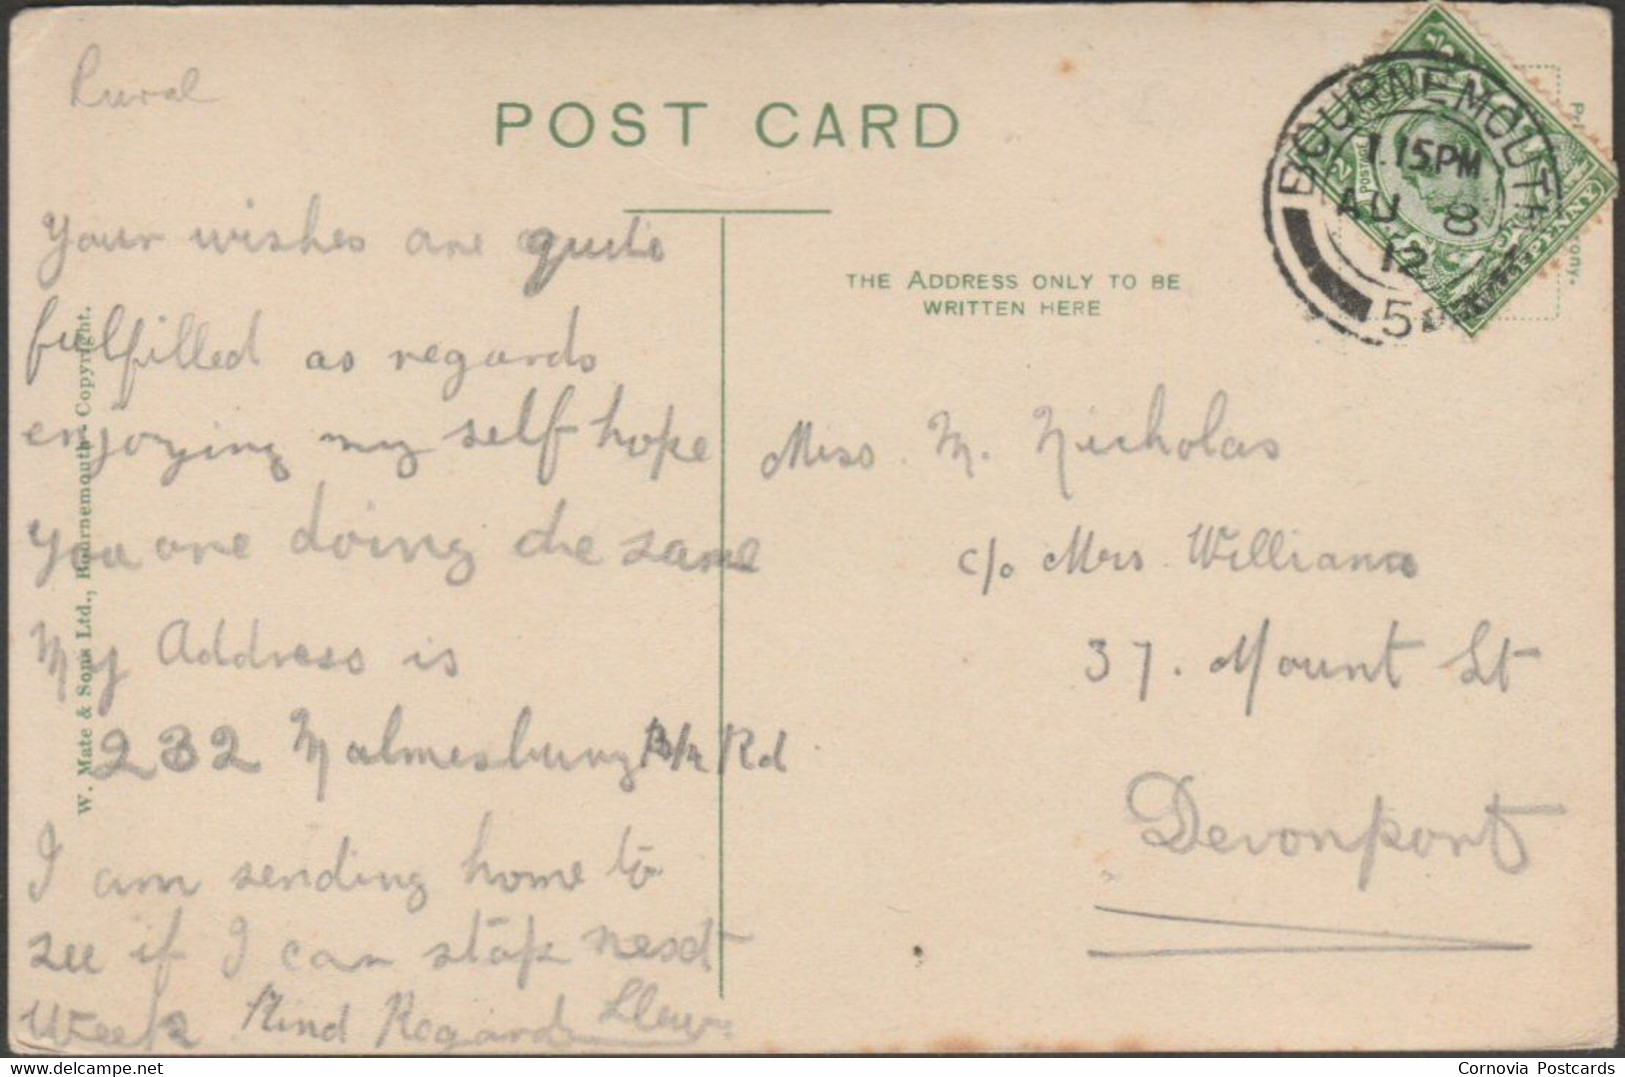 Rural
POST CARD
Your wishes are quite
fulfilled as regards
enjoying my self hope
you are doing the same
My Address is
232 Malmesbury P/k Rd
I am sending home to
see if I can stop next
Week Kind Regards Llew
W. Mate & Sons Ltd., Bournemouth. Copyright.
THE ADDRESS ONLY TO BE
WRITTEN HERE
BOURNEMOUTH
1.15PM
AU 8
12
5
POSTAGE
HALFPENNY
Miss. M. Nicholas
c/o Mrs Williams
37. Mount St
Devonport
delcampe.net
Cornovia Postcards